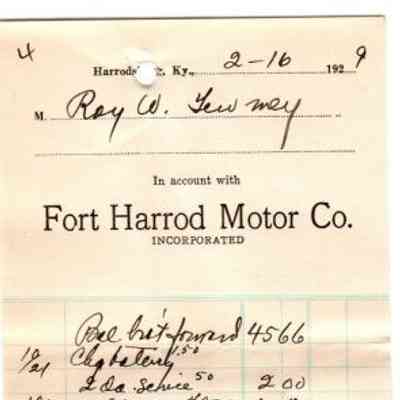 4
Harrodsburg, Ky., 2-16 1929
M. Roy W.
In account with
Fort Harrod Motor Co.
INCORPORATED
Bal bro't forward 4566
10/21 Chg batery .50
2 da. service 50 2 00